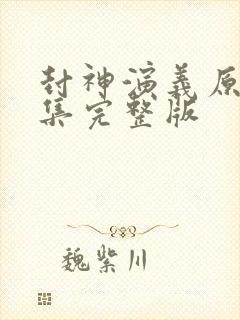 封神演義原
集完整版
魏紫川